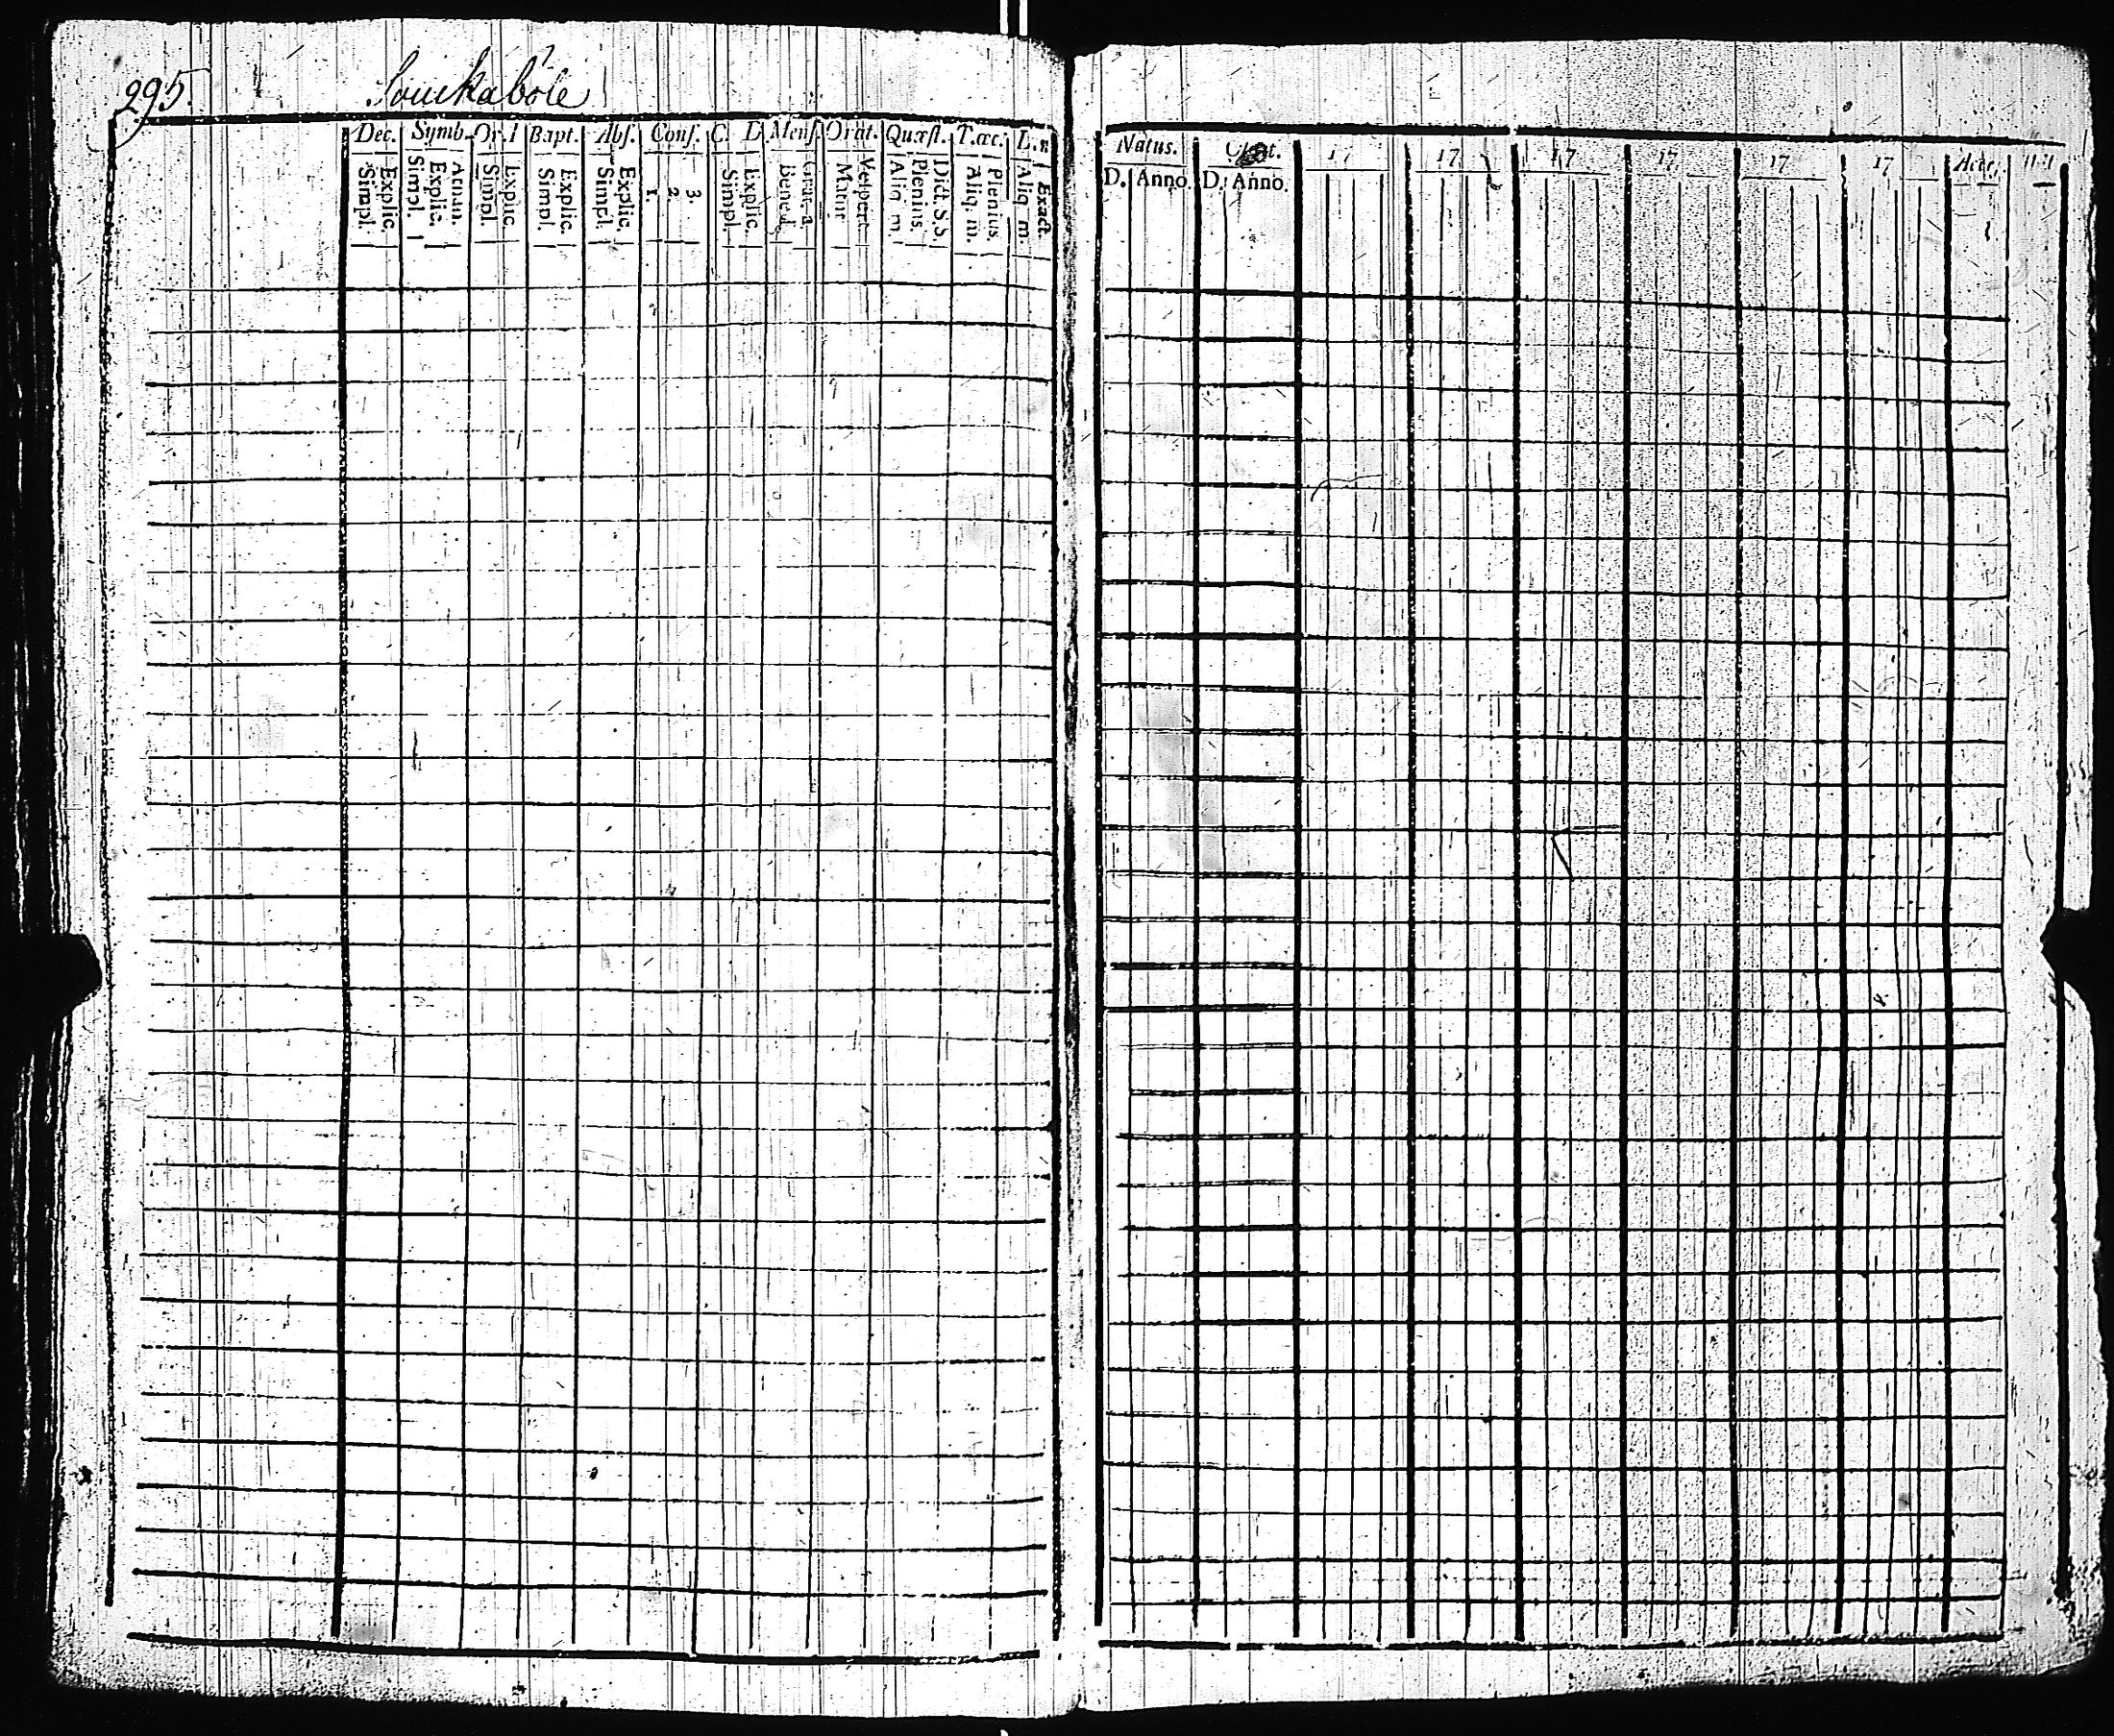 295. Souckaböle
Dec. Symb. Or. 1 Bapt. Abs. Conf. C. D. Mens. Orat. Quæst. T.œc.
Simpl. Explic. Simpl. Explic. Athan. Simpl. Explic. Simpl. Explic. Simpl. Explic. 1. 2. 3. Simpl. Explic. Bened. Grat. a. Matut. Vespert. Aliq. m. Plenius. Dict. S.S. Aliq. m. Plenius. Aliq. m. Exact.
Natus. 17 17 17 17 17 17 Acce.
D. Anno. D. Anno.